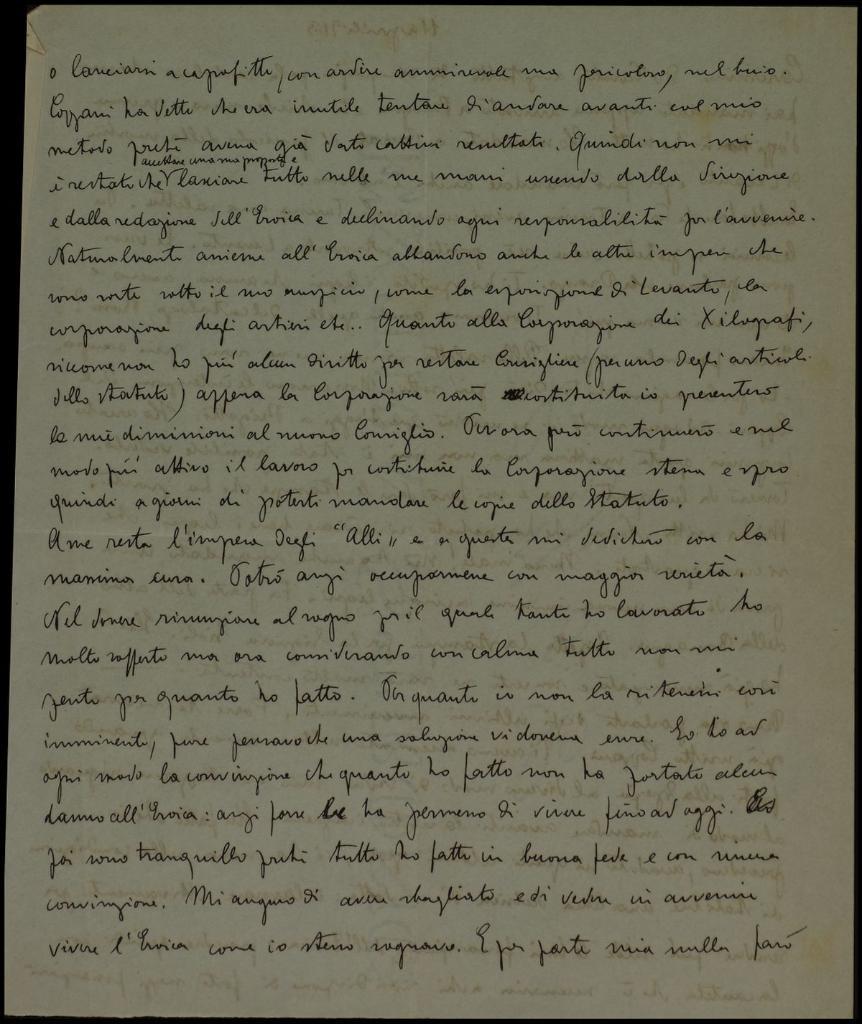 o lanciarsi a capofitto, con ardire ammirevole ma pericoloso, nel buio.
Cozzani ha detto che era inutile tentare di andare avanti col mio
metodo perché aveva già dato cattivi resultati. Quindi non mi
accettare una sua proposta e
è restato che lasciare tutto nelle sue mani uscendo dalla direzione
e dalla redazione dell'Eroica e declinando ogni responsabilità per l'avvenire.
Naturalmente assieme all'Eroica abbandono anche le altre imprese che
sono sorte sotto il suo auspicio, come la esposizione di Levanto, la
corporazione degli artieri etc.. Quanto alla Corporazione dei Xilografi,
siccome non ho più alcun diritto per restare Consigliere (per uno degli articoli
dello statuto) appena la Corporazione sarà costituita io presenterò
le mie dimissioni al nuovo Consiglio. Per ora però continuerò e nel
modo più attivo il lavoro per costituire la Corporazione stessa e spero
quindi a giorni di poterti mandare le copie dello Statuto.
A me resta l'impresa degli "Alli" e a questa mi dedicherò con la
massima cura. Potrò anzi occuparmene con maggior serietà.
Nel dovere rinunziare al sogno per il quale tanto ho lavorato ho
molto sofferto ma ora considerando con calma tutto non mi
pento per quanto ho fatto. Per quanto io non la ritenessi così
imminente, pure pensavo che una soluzione vi doveva essere. Io ho ad
ogni modo la convinzione che quanto ho fatto non ha portato alcun
danno all'Eroica: anzi forse le ha permesso di vivere fino ad oggi.
poi sono tranquillo perché tutto ho fatto in buona fede e con sincera
convinzione. Mi auguro di avere sbagliato e di vedere in avvenire
vivere l'Eroica come io stesso sognavo. E per parte mia nulla farò